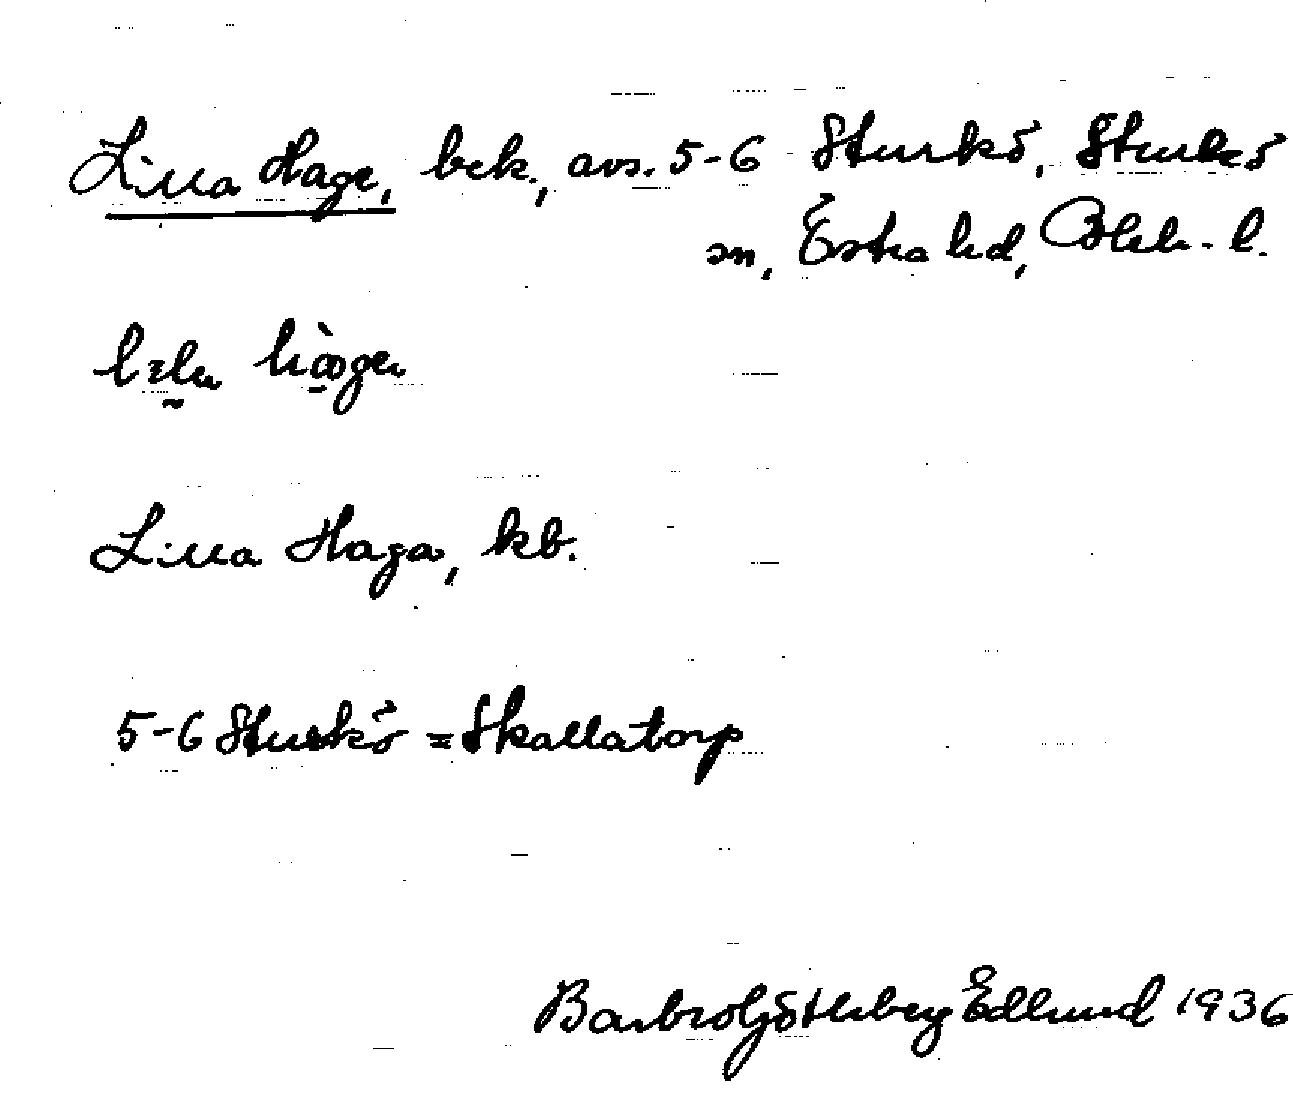 Lilla Hage, bek., avs. 5-6 Sturkö, Sturkö
sn, Östra hd, Blek. l.
Lilla Haga, kb.
5-6 Sturkö = Skallatorp
Barbro Götlberg Edlund 1936